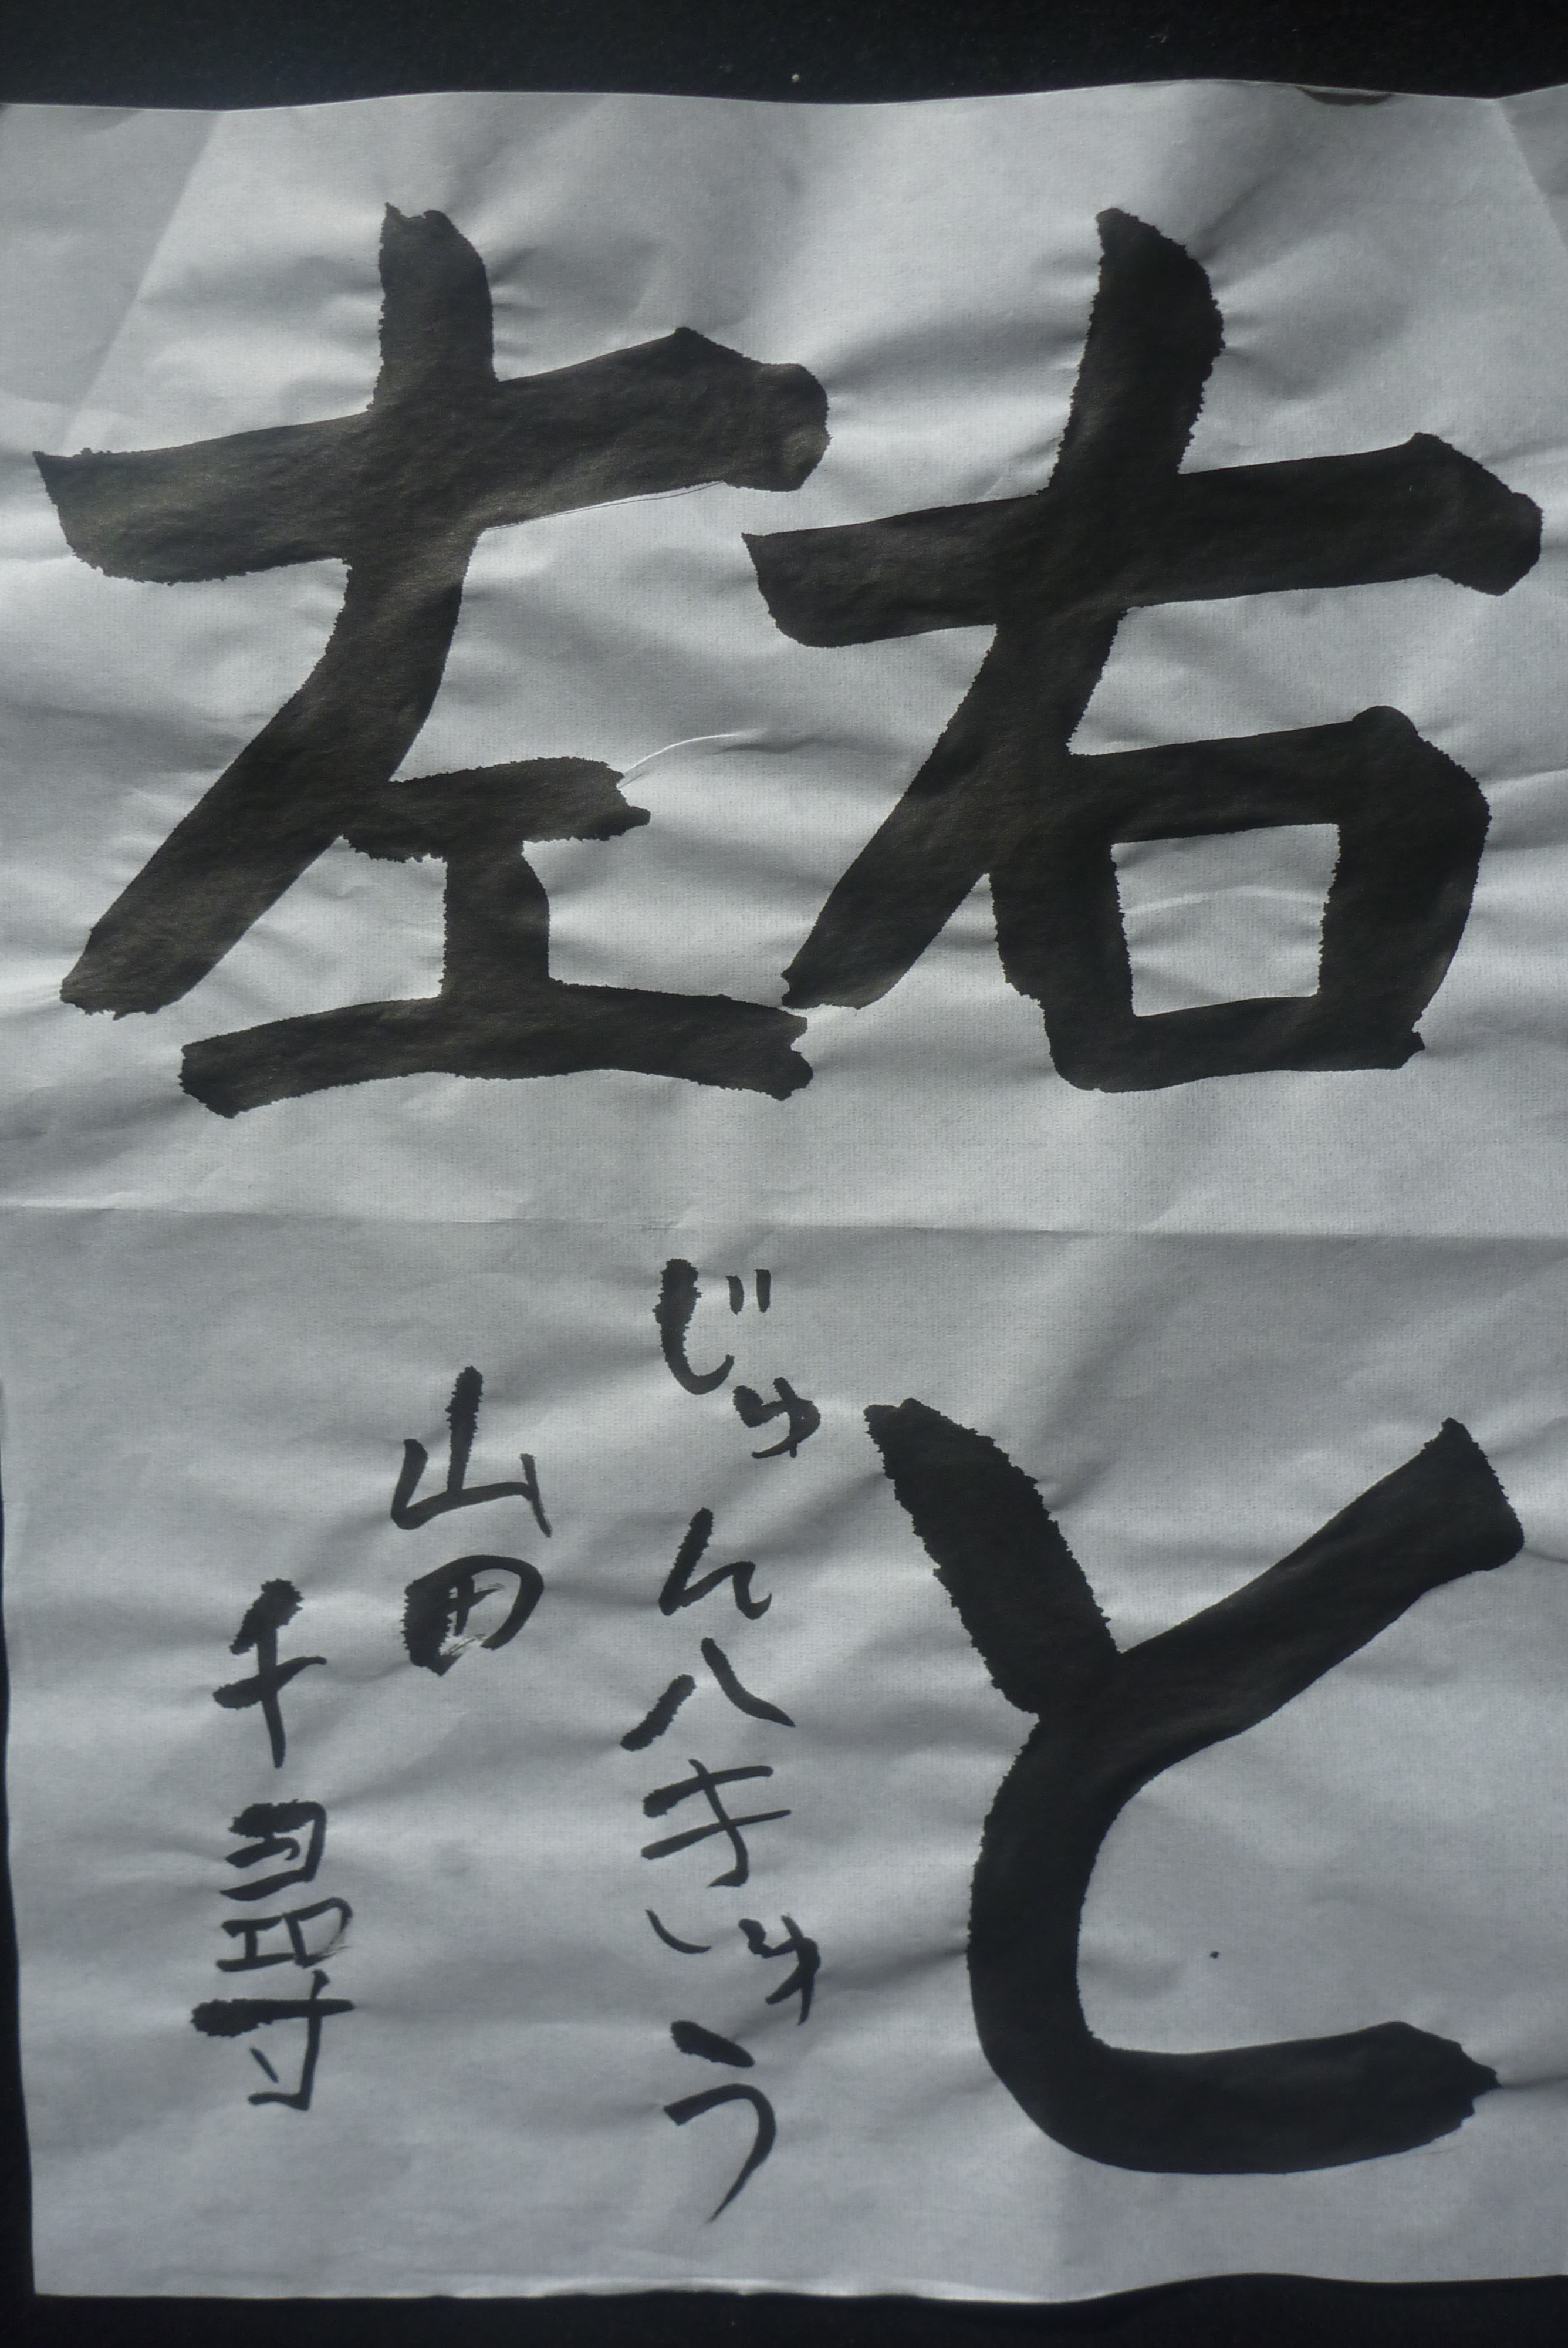 右と
左
じゅん八きゅう
山田
千尋